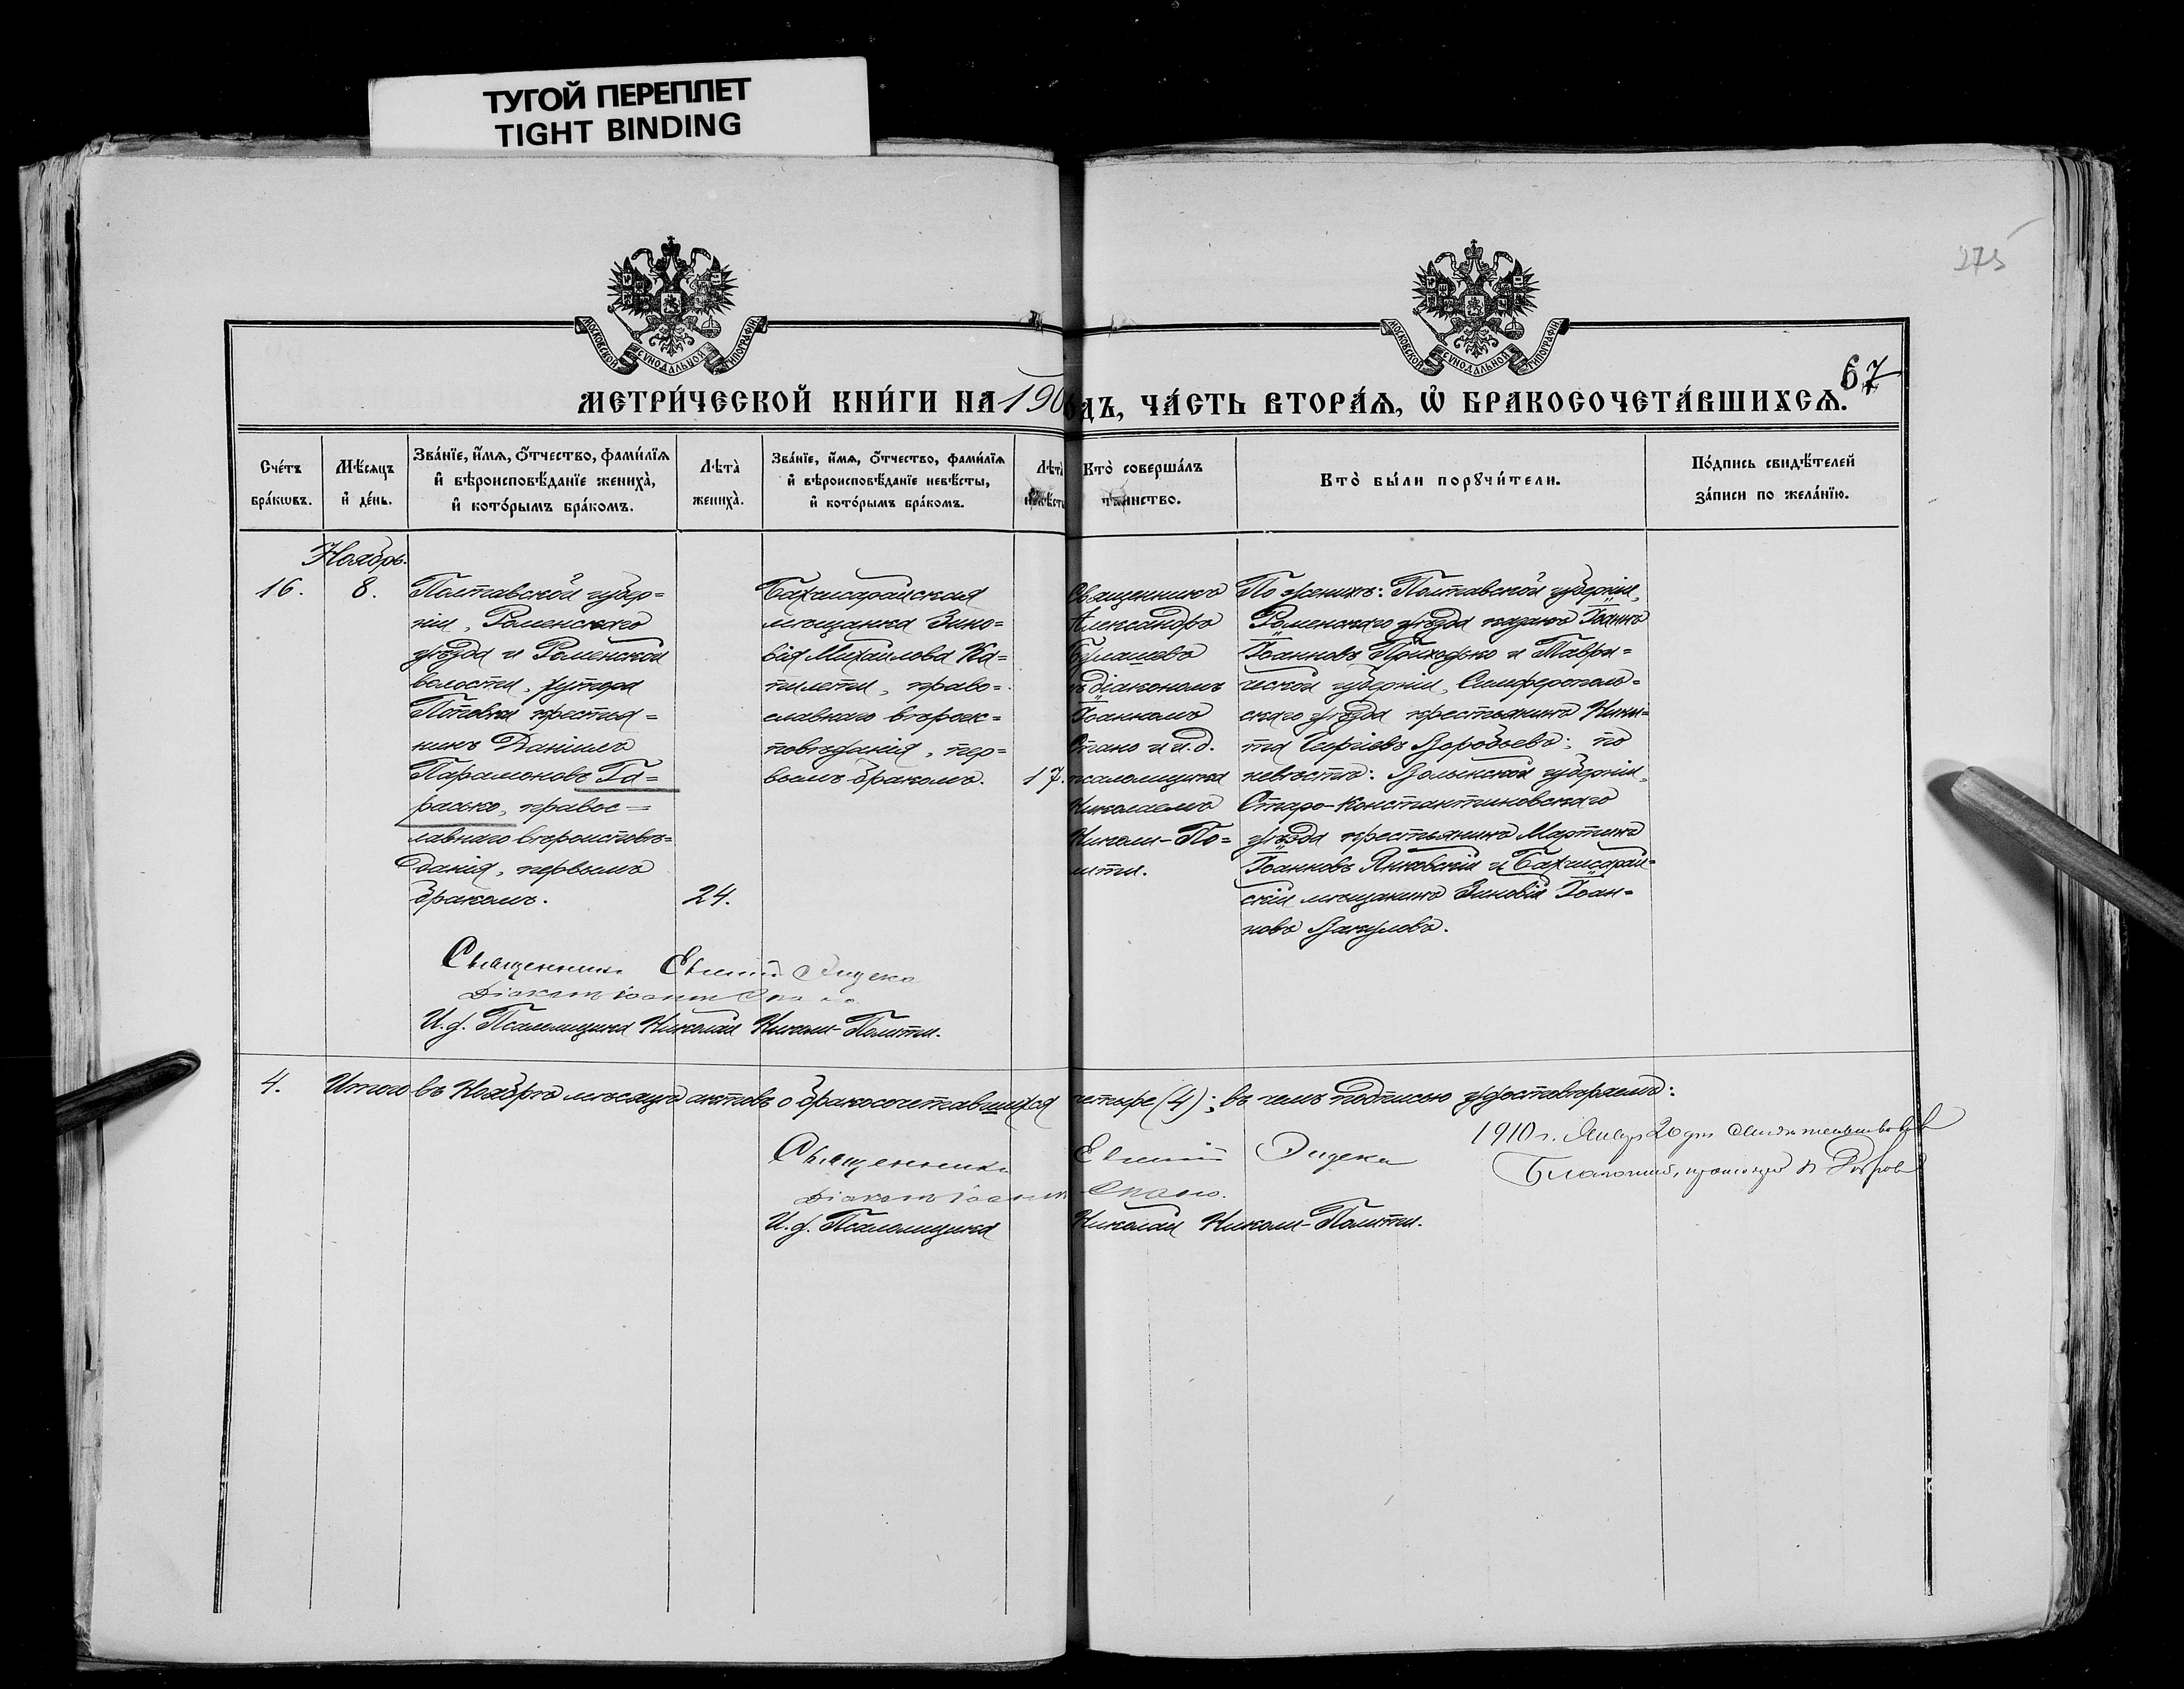 ТУГОЙ ПЕРЕПЛЕТ
TIGHT BINDING
275
МОСКОВСКОЙ СѴНОДАЛЬНОЙ ТИПОГРАФІИ
МОСКОВСКОЙ СѴНОДАЛЬНОЙ ТИПОГРАФІИ
67
МЕТРИ́ЧЕСКОЙ КНИ́ГИ НА 190 ОДЪ, ЧА́СТЬ ВТОРА́Ѧ, Ѽ БРАКОСОЧЕТА́ВШИХСѦ.
Сче́тъ
бра́кѡвъ.
Мѣ́сѧцъ
и҆ де́нь.
Зва́нїе, и҆́мѧ, ѻ҆́тчество, фами́лїѧ
и҆ вѣроисповѣ́данїе жениха̀,
и҆ кото́рымъ бра́комъ.
Лѣта̀
жениха̀.
Зва́нїе, и҆́мѧ, ѻ҆́тчество, фами́лїѧ
и҆ вѣроисповѣ́данїе невѣ́сты,
и҆ кото́рымъ бра́комъ.
Лѣта̀
невѣ́сты
Кто̀ соверша́лъ
та́инство.
Кто̀ бы́ли порꙋчи́тели.
По́дпись свидѣ́телей
за́писи по жела́нїю.
Ноябрь.
16.
8.
Полтавской губер=
ніи, Роменскаго
уѣзда и Роменской
волости, хутора
крестья=
нинъ Даніилъ
Парамоновъ Га=
расько, правос=
лавнаго вѣроисповѣ=
данія, первымъ
бракомъ.
24.
Бахчисарайская
мѣщанка Зино=
вія Михайлова Ка=
пилети, право=
славнаго вѣроис=
повѣданія, пер=
вымъ бракомъ.
17.
Священникъ
Александръ
Булашевъ
съ діакономъ
Іоанномъ
Спано и и.д.
псаломщика
Николаемъ
Николи-По=
лити.
По женихѣ: Полтавской губерніи,
Роменскаго уѣзда казакъ Іоаннъ
Іоанновъ Приходько и Таври=
ческой губерніи, Симферополь=
скаго уѣзда крестьянинъ Ники=
та Георгіевъ Воробьевъ; по
невѣстѣ: Волынской губерніи,
Старо-Константиновскаго
уѣзда крестьянинъ Мартинъ
Іоанновъ Янковскій и Бахчисарай=
скій мѣщанинъ Зиновій Іоан=
новъ Вакуловъ.
Священникъ Евѳимій
Діаконъ Іоаннъ Спано
И.д. Псаломщика Николай Николи-Полити.
4.
Итого въ Ноябрѣ мѣсяцѣ актовъ о бракосочетавшихся четыре (4); въ чемъ подписью удостовѣряемъ:
Священникъ Евѳимій
Діаконъ Іоаннъ Спано.
И.д. Псаломщика Николай Николи-Полити.
1910 г. Января 20 дня свидѣтельствовалъ
Благочинный,